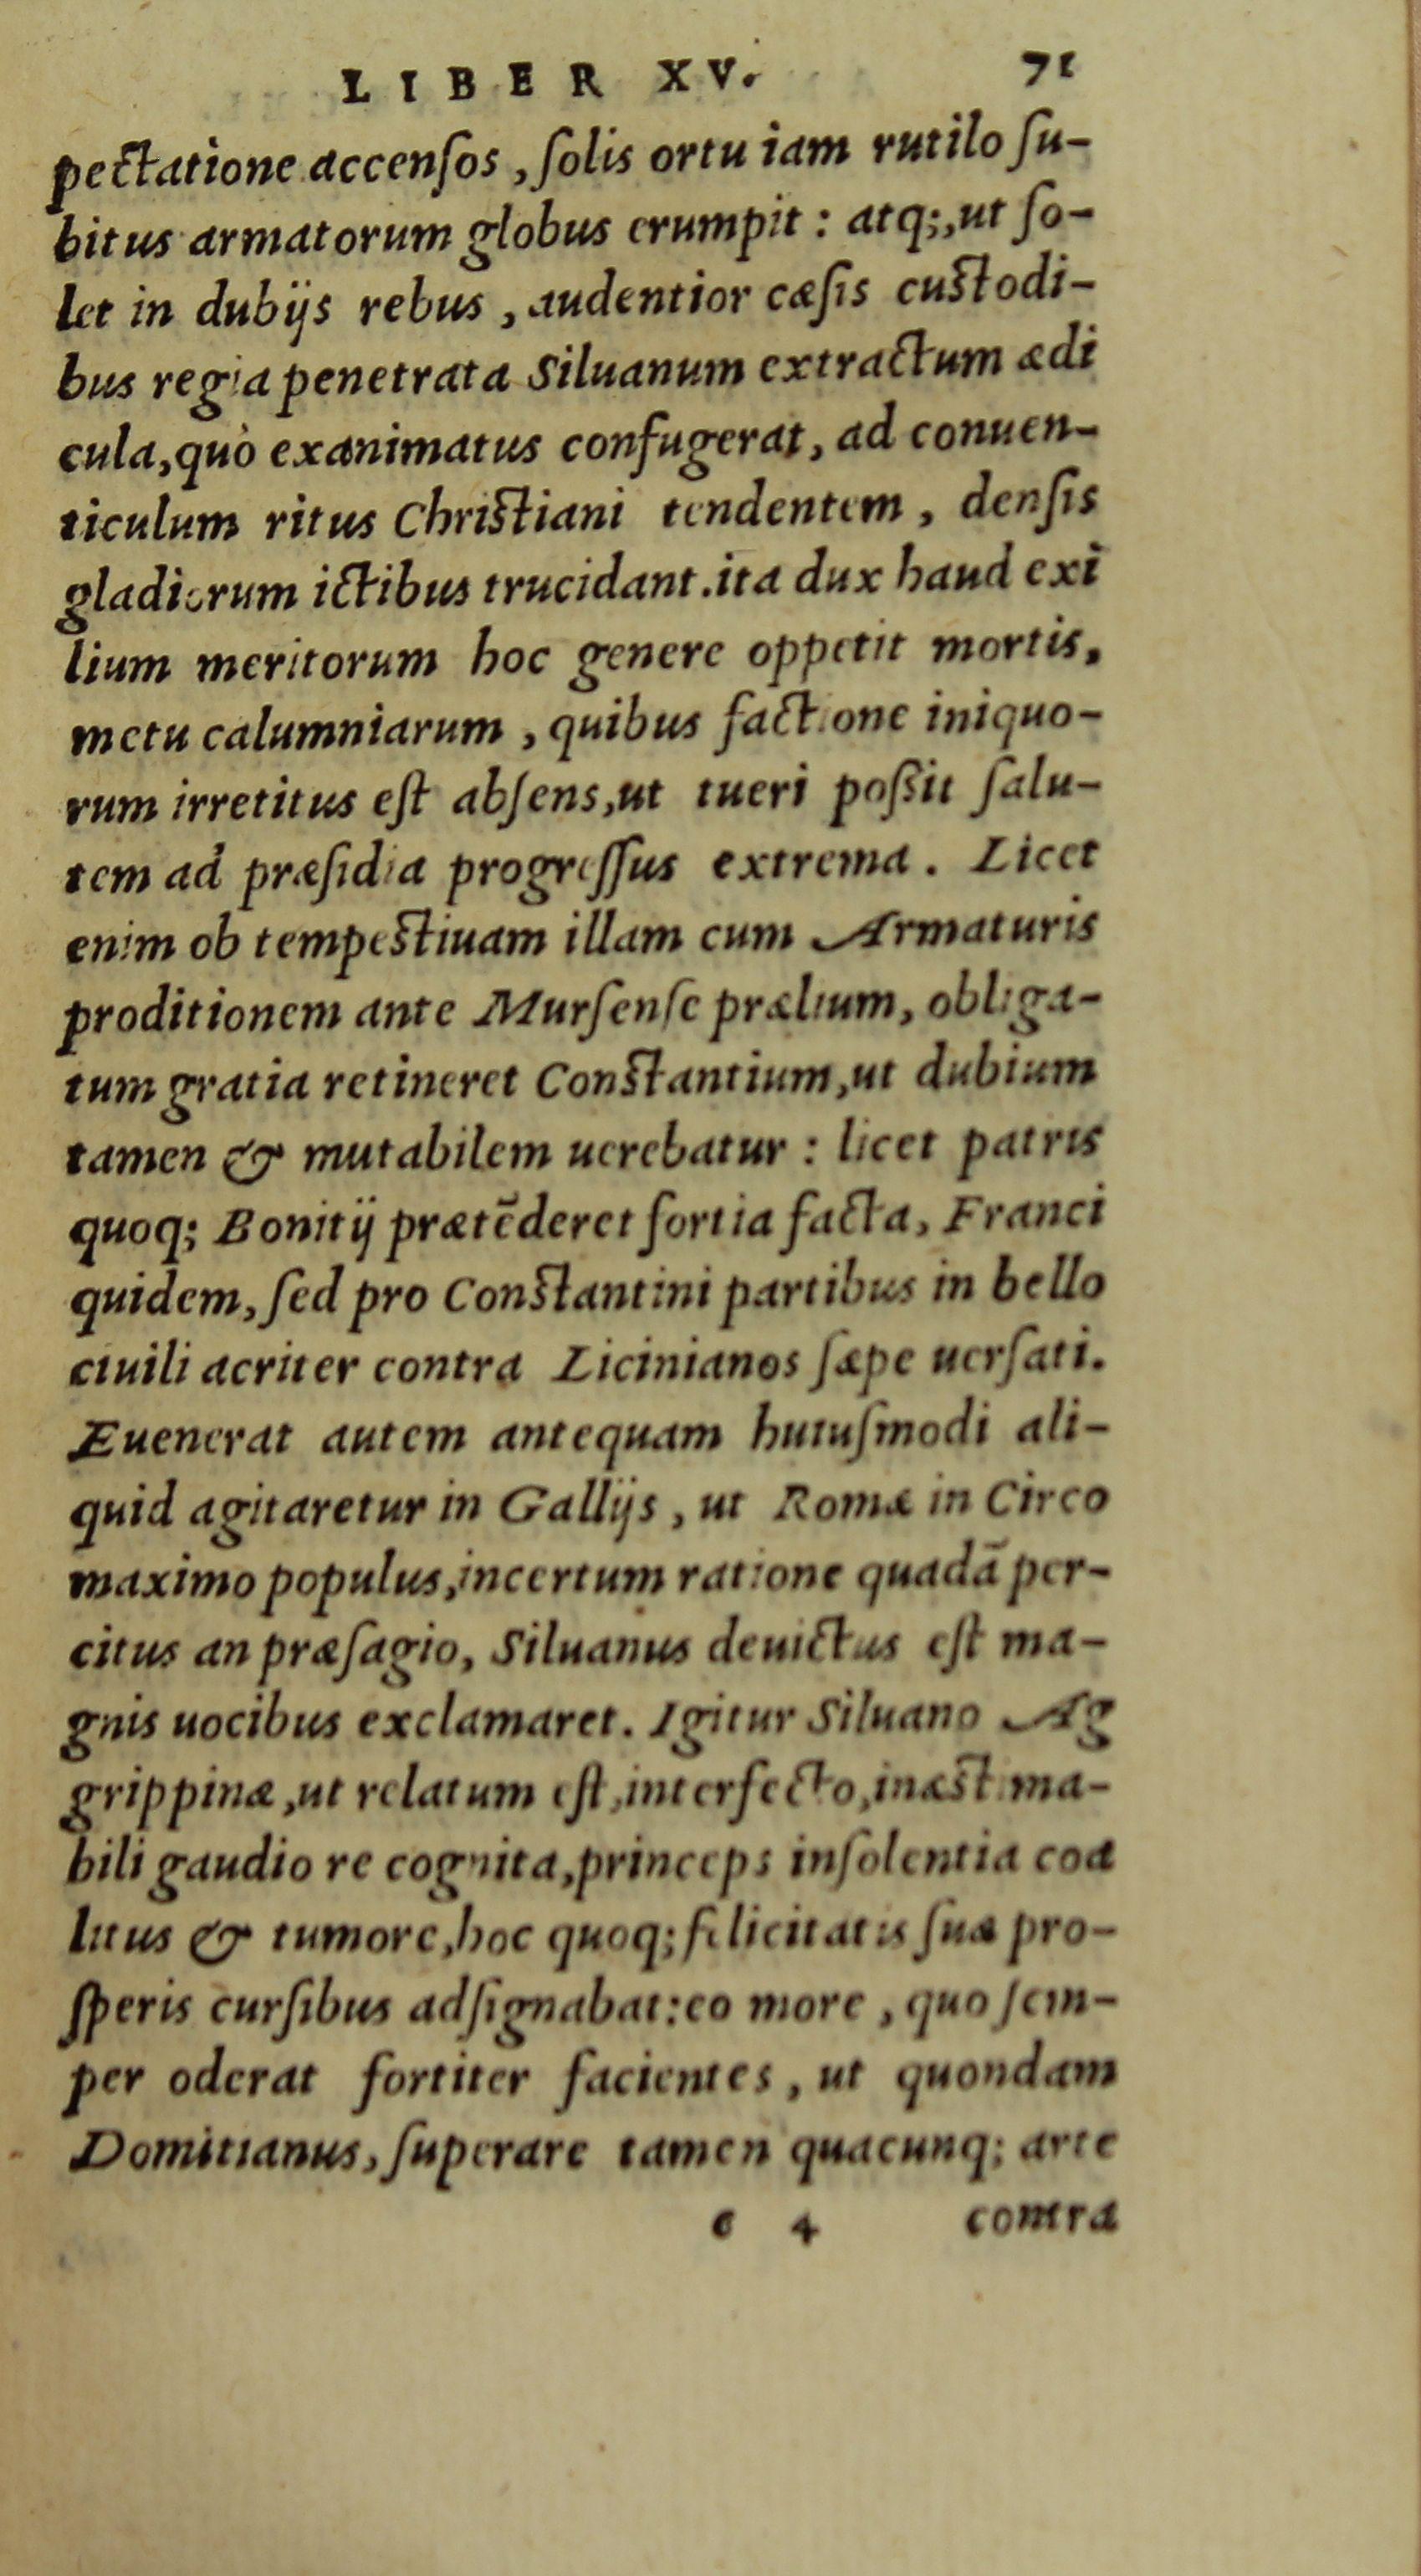 LIBER XV. 71
pectatione accenſos, ſolis ortu iam rutilo ſu-
bitus armatorum globus erumpit: atq;, ut ſo-
let in dubijs rebus, audentior cæſis cuſtodi-
bus regia penetrata Siluanum extractum ædi
cula, quò exanimatus confugerat, ad conuen-
ticulum ritus Chriſtiani tendentem, denſis
gladiorum ictibus trucidant. ita dux haud exi
lium meritorum hoc genere oppetit mortis,
metu calumniarum, quibus factione iniquo-
rum irretitus eſt abſens, ut tueri poßit ſalu-
tem ad præſidia progreſſus extrema. Licet
enim ob tempeſtiuam illam cum Armaturis
proditionem ante Murſenſe prælium, obliga-
tum gratia retineret Conſtantium, ut dubium
tamen & mutabilem uerebatur: licet patris
quoq; Bonitij prætēderet fortia facta, Franci
quidem, ſed pro Conſtantini partibus in bello
ciuili acriter contra Licinianos ſæpe uerſati.
Euenerat autem antequam huiuſmodi ali-
quid agitaretur in Gallijs, ut Romæ in Circo
maximo populus, incertum ratione quadā per-
citus an præſagio, Siluanus deuictus eſt ma-
gnis uocibus exclamaret. Igitur Siluano Ag
grippinæ, ut relatum eſt, interfecto, inæſtima-
bili gaudio re cognita, princeps inſolentia coa
litus & tumore, hoc quoq; felicitatis ſuæ pro-
ſperis curſibus adſignabat: eo more, quo ſem-
per oderat fortiter facientes, ut quondam
Domitianus, ſuperare tamen quacunq; arte
e 4 contra